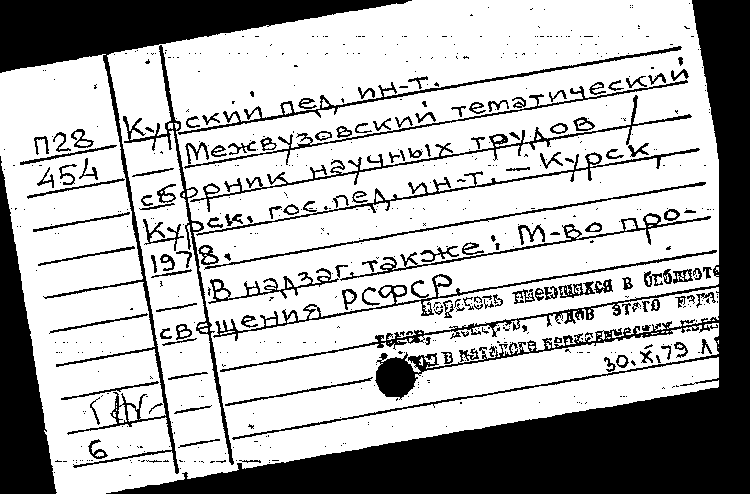 П28
454
Курский пед. ин-т.
Межвузовский тематический
сборник научных трудов /
Курск. гос. пед. ин-т. — Курск,
1978.
В надзаг. также: М-во про-
свещения РСФСР.
Перечень имеющихся в библиоте
томов, номеров, годов этого
в каталоге периодических
30.X.79
6